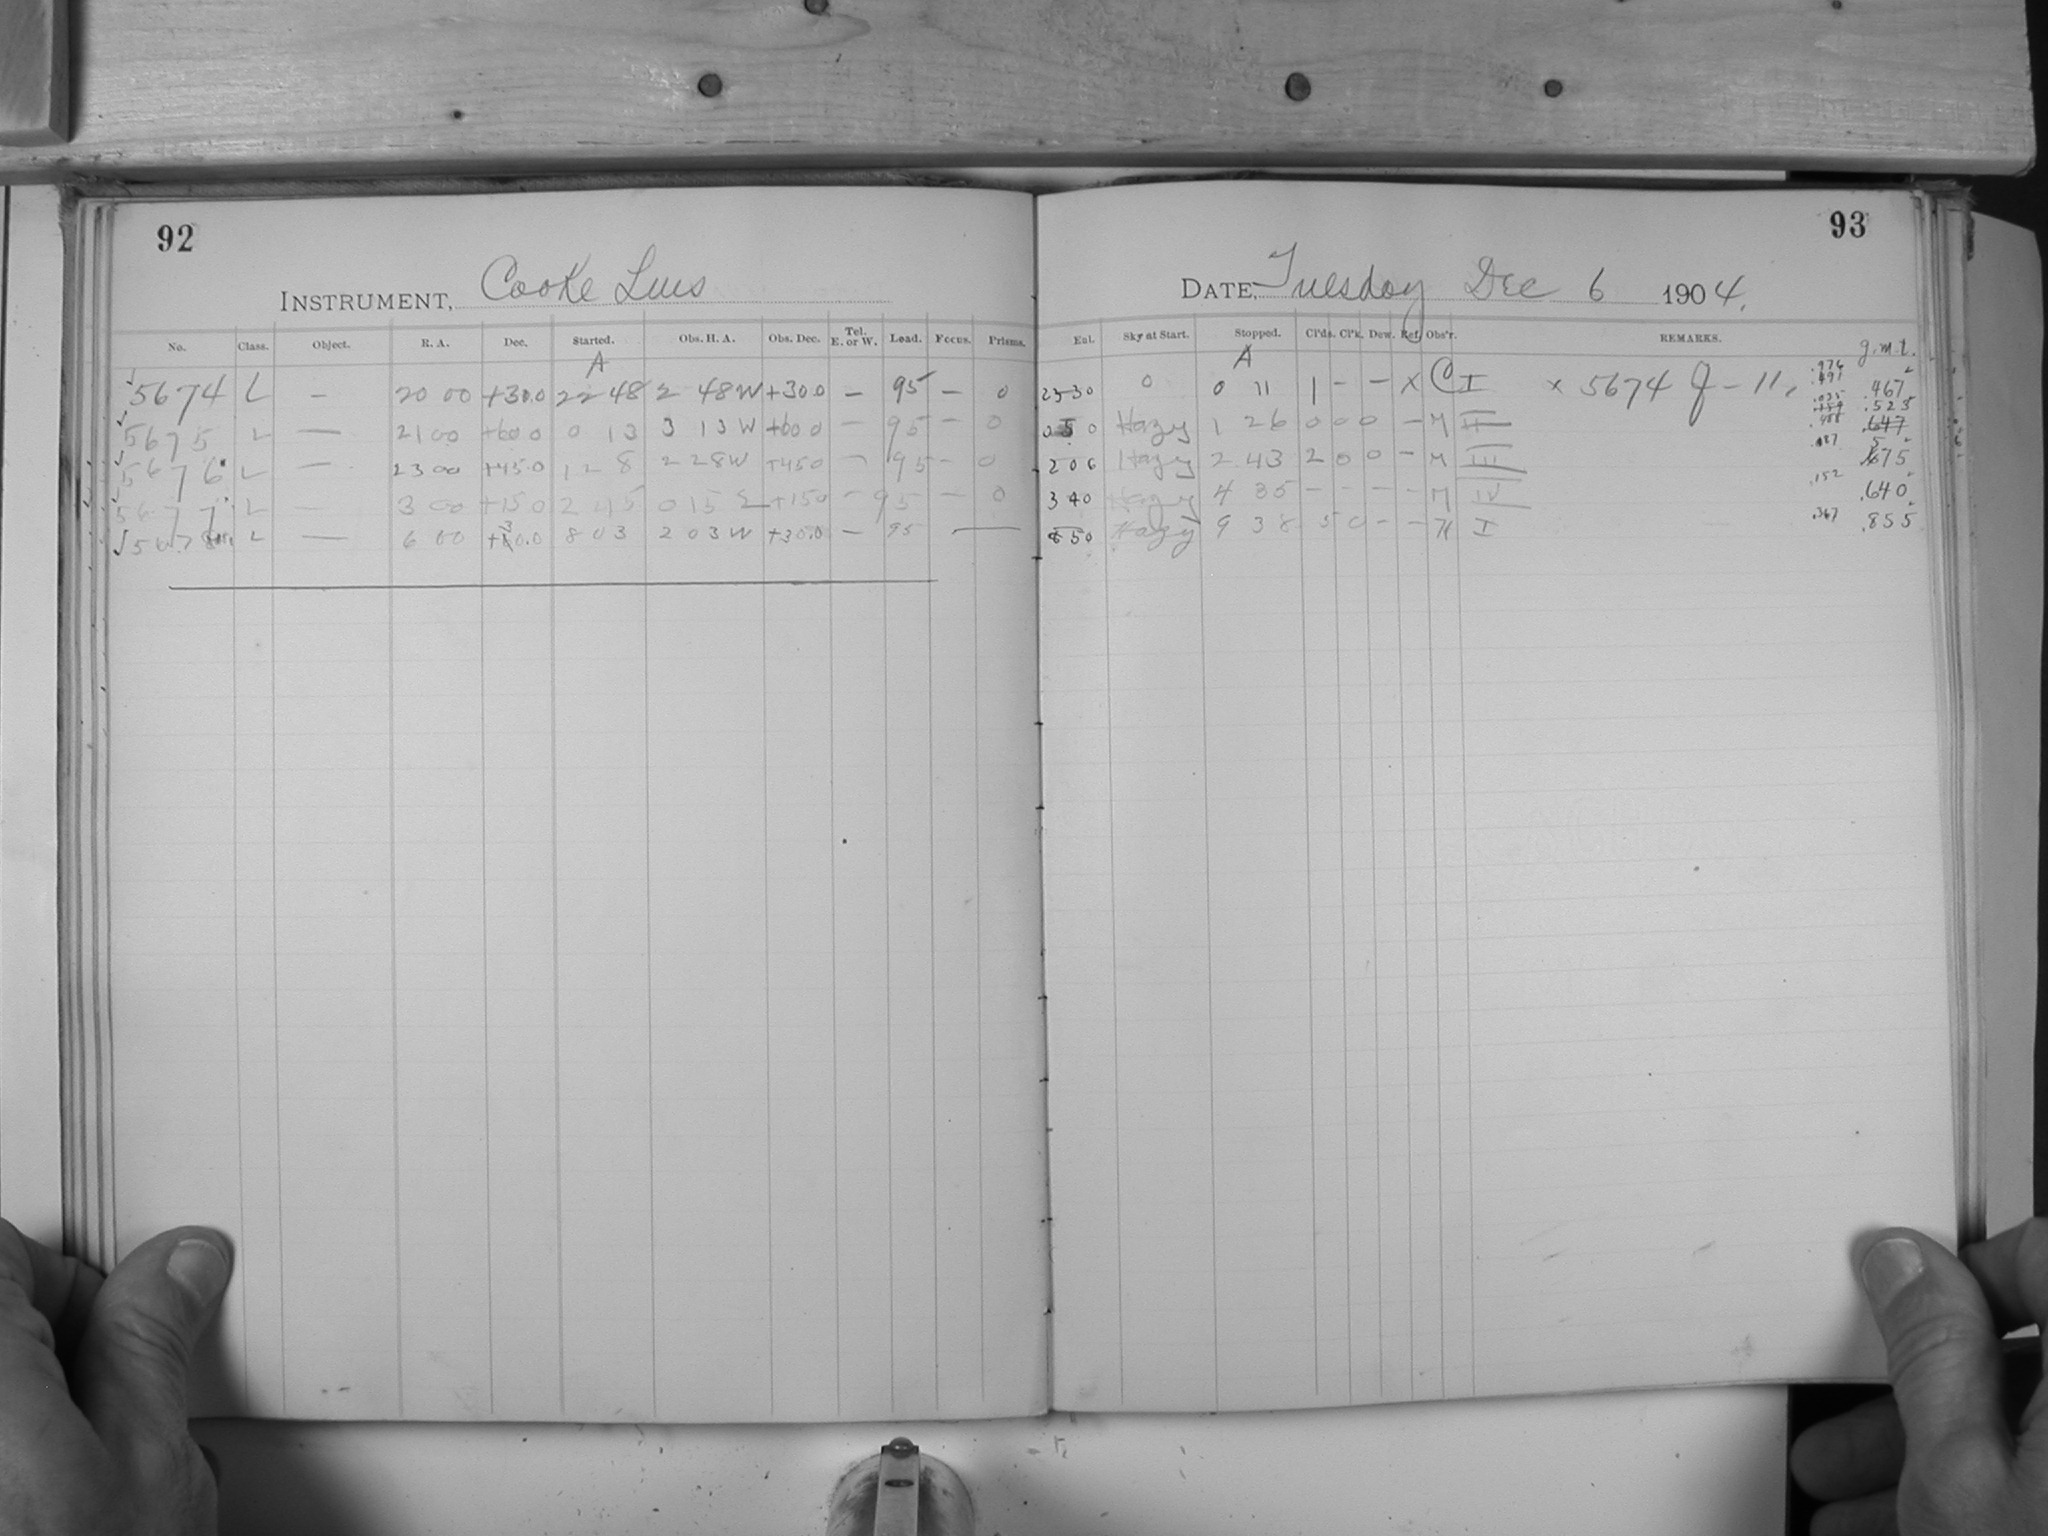 92
INSTRUMENT, Cooke Lens
No. Class. Object. R. A. Dec. Started. Obs. H. A. Obs. Dec. Tel. E. or W. Load. Focus. Prisms.
A
5674 L — 20 00 +30.0 22 48 2 48 W +30.0 — 95 — 0
5675 L — 21 00 +60 0 0 13 3 13 W +60 0 — 95 — 0
5676 L — 23 00 +45.0 1 28 2 28 W +45 0 — 95 — 0
5677 L — 3 00 +15 0 2 45 0 15 E +15 0 — 95 — 0
5678 L — 6 00 +30.0 8 03 2 03 W +30.0 — 95 —
93
DATE, Tuesday Dec 6 1904.
Exl. Sky at Start. Stopped. Cl'ds. Cl'k. Dew. Ref. Obs'r. REMARKS. g.m.t.
A
23 30 0 0 11 1 - - x C I x 5674 J - 11, .467
0 50 Hazy 1 26 0 0 0 - M II .523
2 06 Hazy 2 43 2 0 0 - M III .575
3 40 Hazy 4 35 - - - - M IV .152 .640
8 50 Hazy 9 38 5 0 - - M I .367 .855